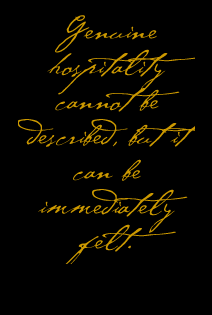 Genuine
hospitality
cannot be
described, but it
can be
immediately
felt.